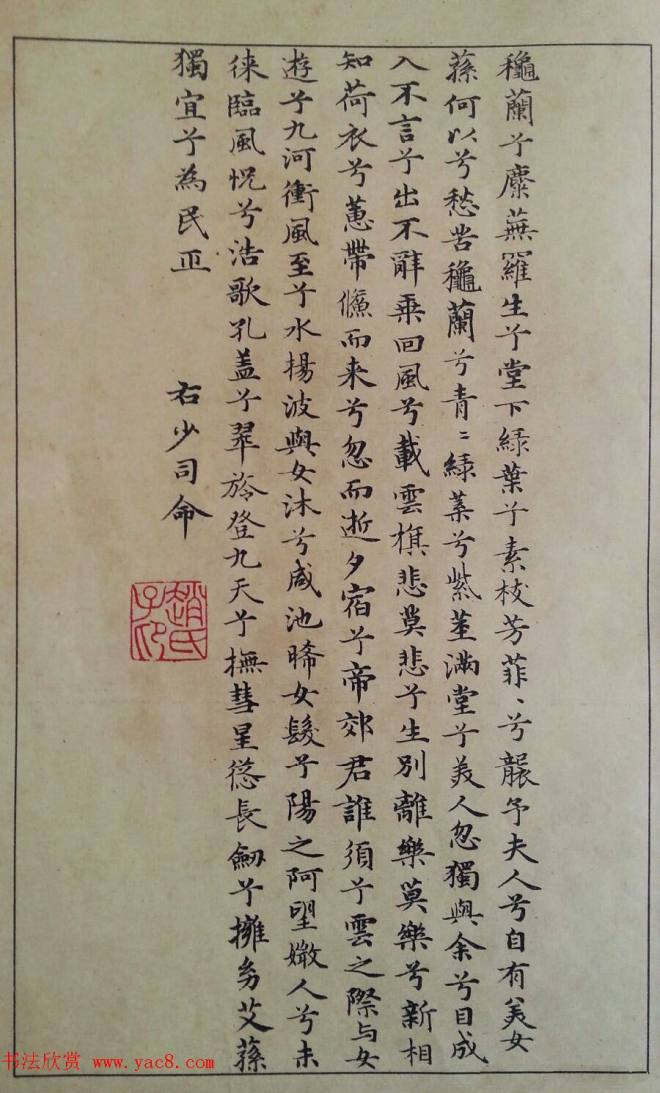 穐蘭兮麋蕪羅生兮堂下綠葉兮素枝芳菲〻兮襲予夫人兮自有美女
蓀何以兮愁苦穐蘭兮青〻綠葉兮紫莖滿堂兮美人忽獨與余兮目成
入不言兮出不辭乗回風兮載雲旗悲莫悲兮生別離樂莫樂兮新相
知荷衣兮蕙帶儵而来兮忽而逝夕宿兮帝郊君誰須兮雲之際与女
遊兮九河衝風至兮水揚波與女沐兮咸池晞女髮兮陽之阿望媺人兮未
徠臨風怳兮浩歌孔盖兮翠旍登九天兮撫彗星慫長劒兮擁㓜艾蓀
獨宜兮為民正
右少司命
趙氏子印
书法欣赏 www.yac8.com